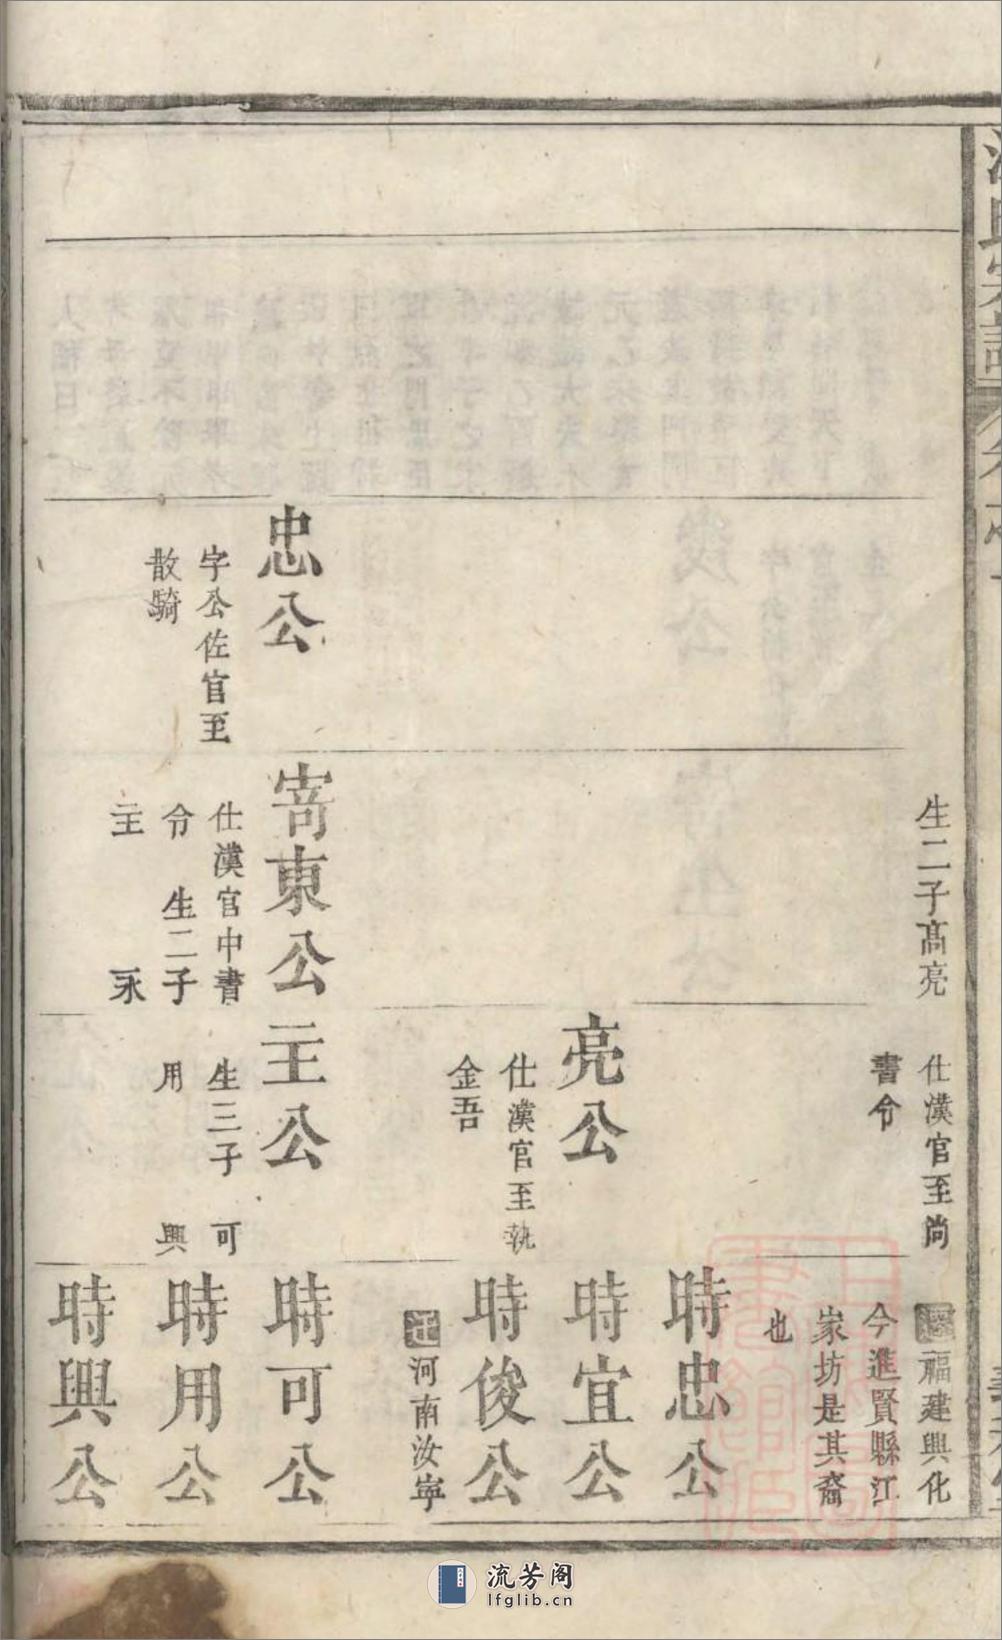 生二子髙亮
仕漢官至尚
書令
福建興化
今進賢縣江
家坊是其裔
也
時忠公
亮公
仕漢官至執
金吾
時宜公
時俊公
河南汝寧
忠公
字公佐官至
散騎
寄東公
仕漢官中書
令 生二子
主 永
主公
生三子 可
用 興
時可公
時用公
時興公
流芳阁
lfglib.cn